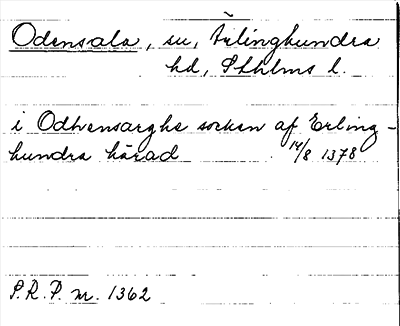 Odensala, sn, Ärlinghundra
hd, Sthlms l.
i Odhensarghe socken af Erling-
hundra härad 14/8 1378
S.R.P. nr. 1362